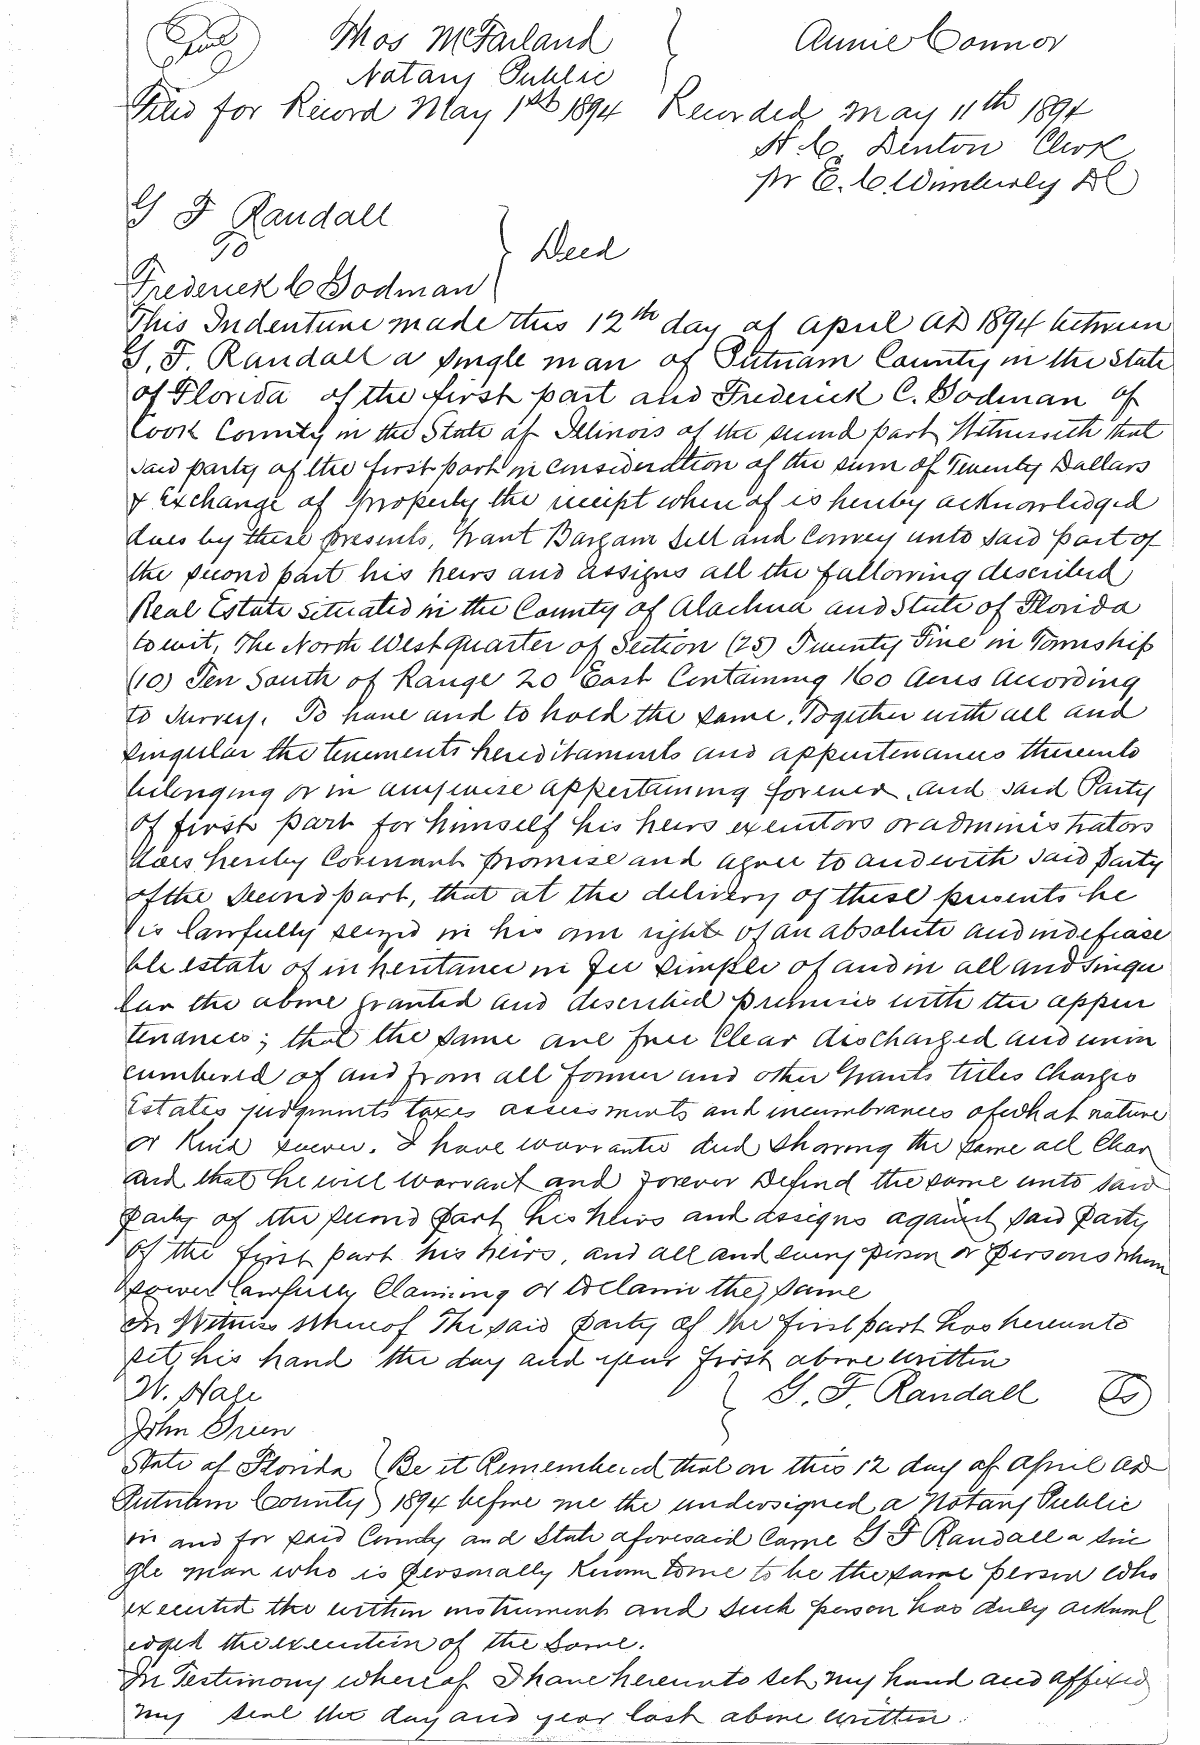 Seal Thos McFarland Annie Connor
Notary Public
Filed for Record May 1st 1894 Recorded May 11th 1894
H. C. Denton Clerk
pr E. C. Wimberly DC
G F Randall
To Deed
Frederick C Godman
This Indenture made this 12th day of April AD 1894 between
G. F. Randall a single man of Putnam County in the State
of Florida of the first part and Frederick C. Godman of
Cook County in the State of Illinois of the second part Witnesseth that
said party of the first part in consideration of the sum of Twenty Dollars
& Exchange of property the receipt whereof is hereby acknowledged
does by these presents, Grant Bargain Sell and Convey unto said part of
the second part his heirs and assigns all the following described
Real Estate situated in the County of Alachua and State of Florida
to wit, The North West quarter of Section (25) Twenty Five in Township
(10) Ten South of Range 20 East Containing 160 Acres According
to Survey. To have and to hold the same. Together with all and
singular the tenements hereditaments and appurtenances thereunto
belonging or in anywise appertaining forever, and said Party
of first part for himself his heirs executors or administrators
does hereby Covenant promise and agree to and with said party
of the Second part, that at the delivery of these presents he
is lawfully seized in his own right of an absolute and indefease
ble estate of inheritance in Fee Simple of and in all and Singu
lar the above granted and described premises with the appur
tenances; that the same are free Clear discharged and unin
cumbered of and from all former and other Grants titles Charges
Estates judgments taxes assessments and incumbrances of what nature
or Kind soever. I have warrantee deed Showing the same all Clear
and that he will Warrant and Forever Defend the same unto said
party of the second part his heirs and assigns against said party
of the first part his heirs, and all and every person or persons whom
soever lawfully Claiming or to Claim the same
In Witness Whereof The said party of the first part has hereunto
set his hand the day and year first above written
W. Hale G. F. Randall LS
John Green
State of Florida Be it Remembered that on this 12 day of April AD
Putnam County 1894 before me the undersigned a Notary Public
in and for said County and State aforesaid Came G F Randall a sin
gle man who is personally Known to me to be the same person who
executed the within instrument and such person has duly acknowl
edged the execution of the same.
In Testimony whereof I have hereunto set my hand and affixed
my seal the day and year last above written.